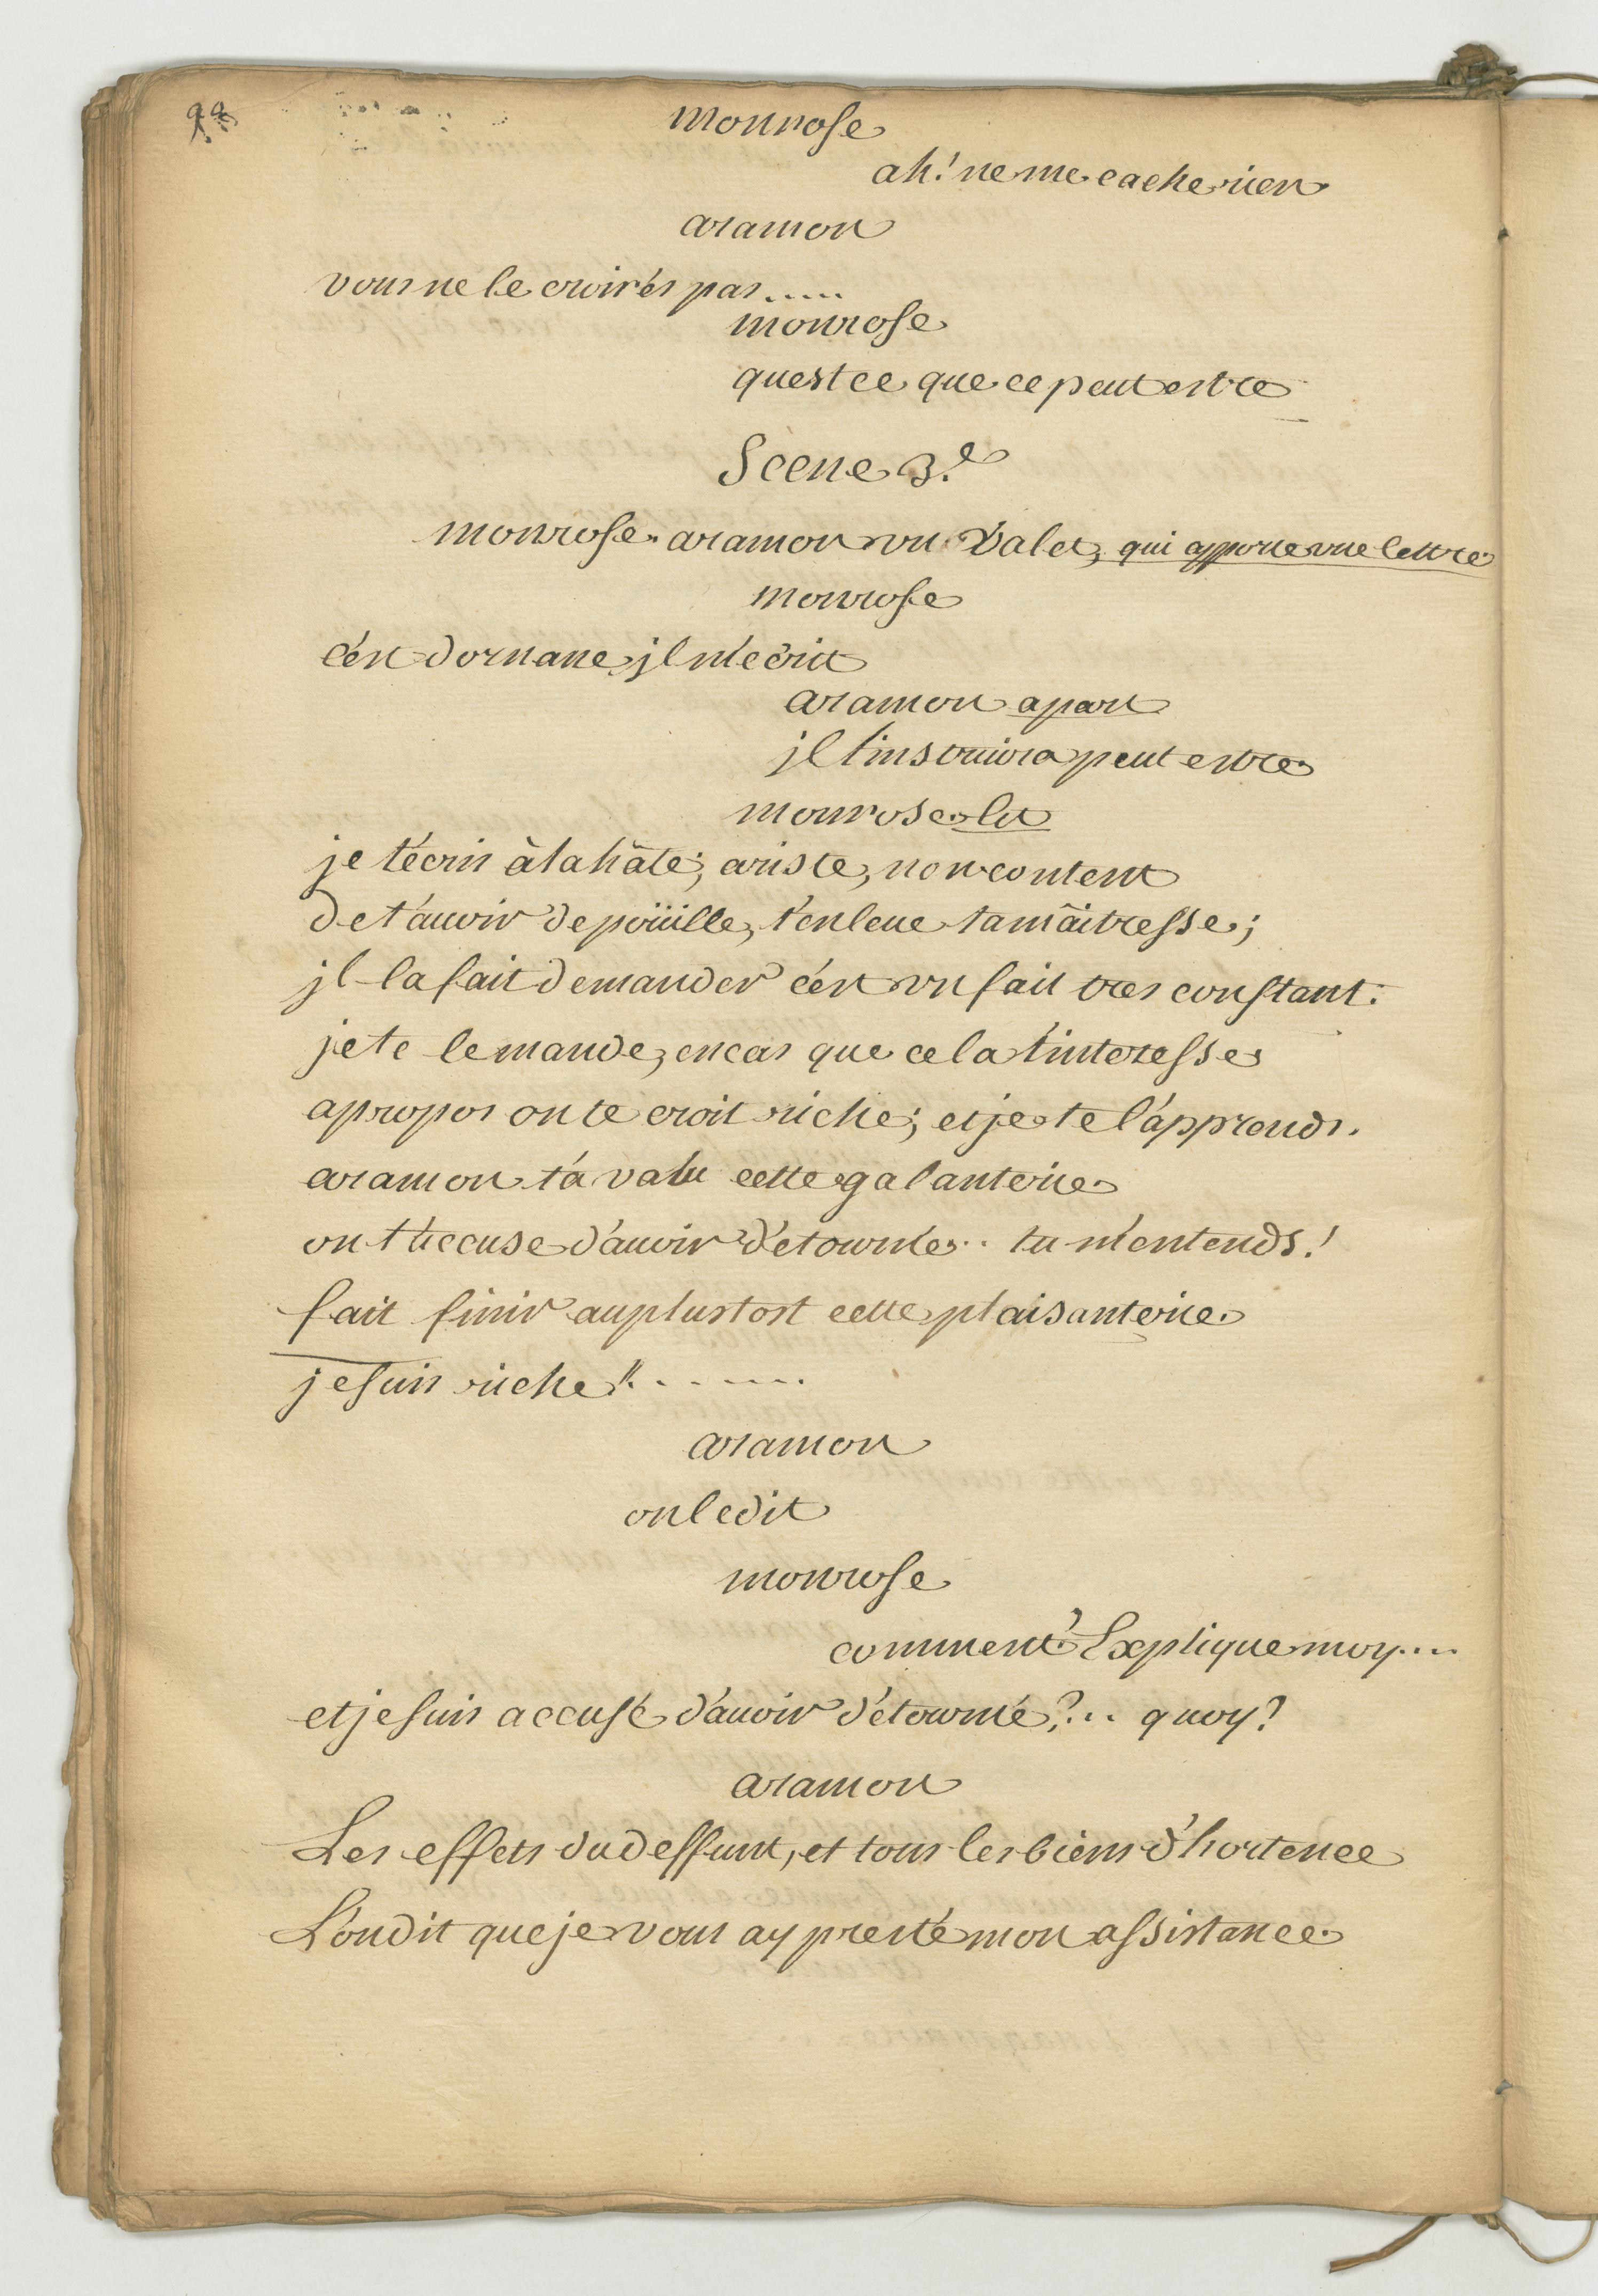 monrose
ah! ne me cache rien
aramon
vous ne le croirés pas.....
monrose
quest ce que ce peut estre
Scene 3.e
monrose. aramon un Valet, qui apporte une lettre
monrose
c'est dornane, jl m'ecrit
aramon apart
jl l'instruira peut estre
monrose lit
je t'écris à la hâte; ariste, non content
de t'auoir depoüille, t'enleue ta maitresse;
jl la fait demander c'est un fait tres constant:
je te le mande, en cas que cela t'interesse
apropos on te croit riche; et je te l'apprends.
aramon t'a valu cette galanterie
on t'accuse d'auoir d'etourné.. tu m'entends!
fait finir au plustost cette plaisanterie.
je suis riche!.......
aramon
on le dit
monrose
comment? Explique moy....
et je suis accusé d'auoir d'étourné?... quoy?
aramon
Les effets du deffunt, et tous les biens d'hortence
L'on dit que je vous ay presté mon assistance.